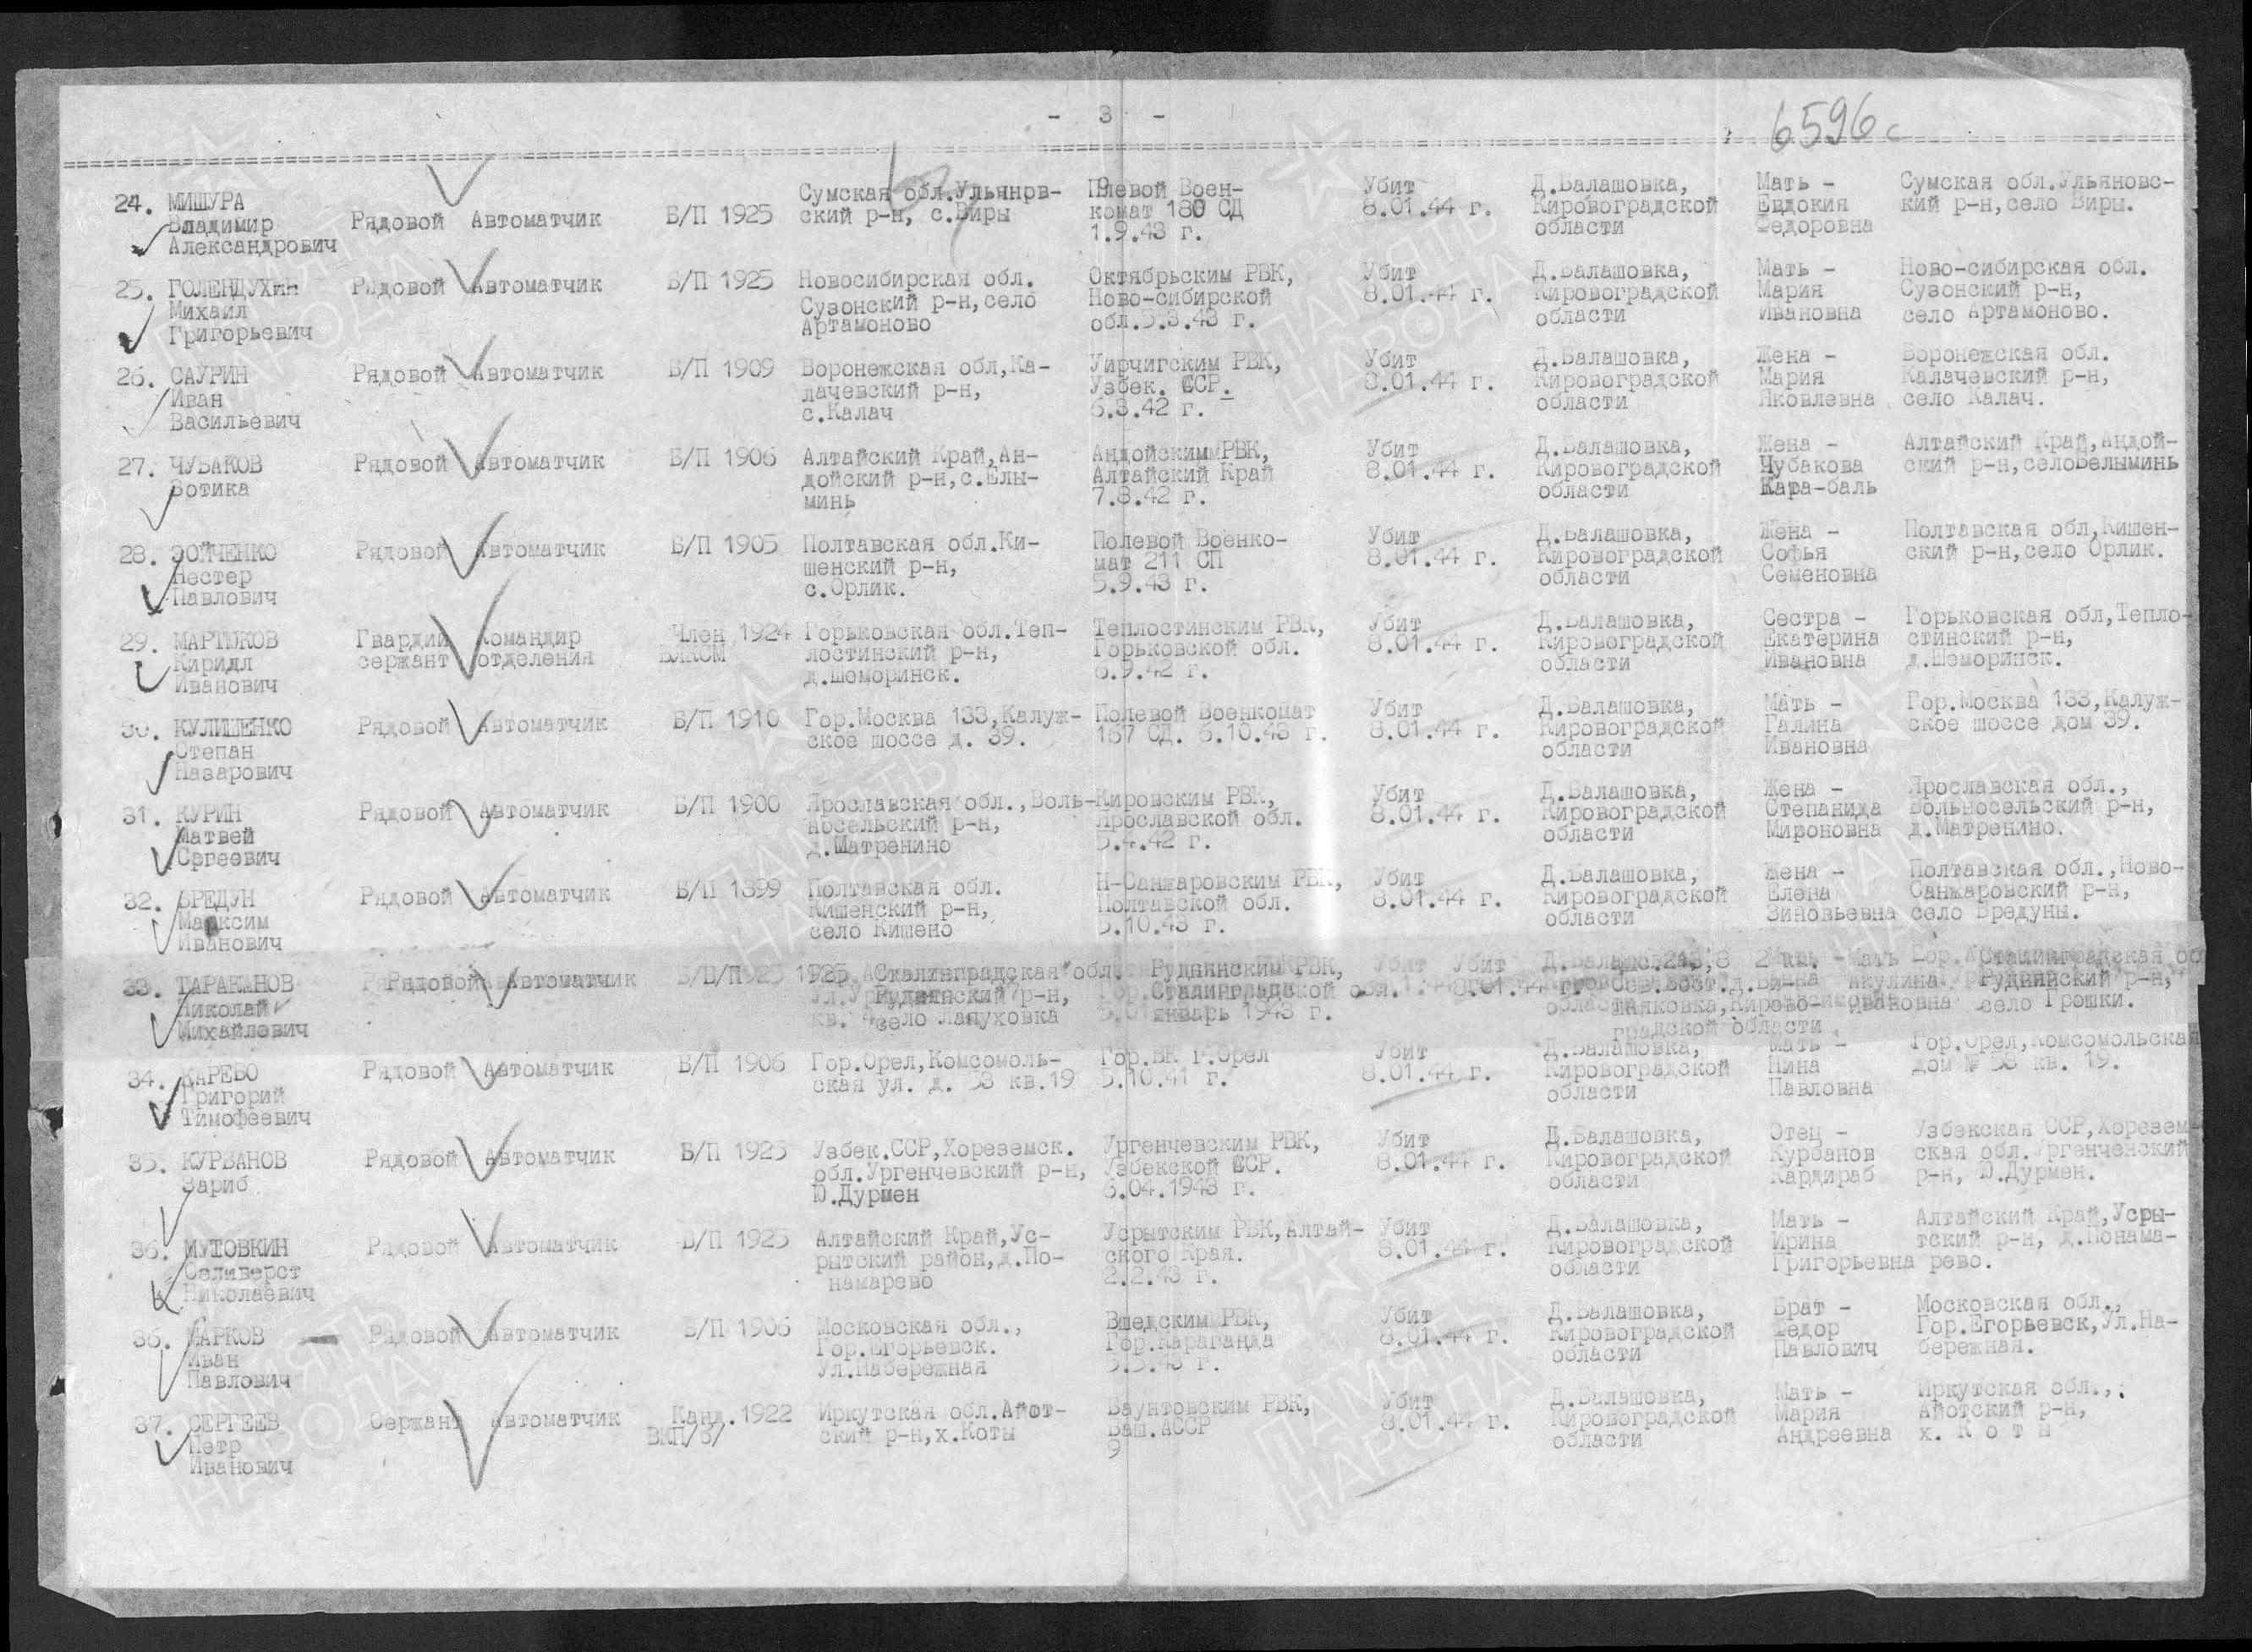 - 3 -
6596с
24. МИШУРА Владимир Александрович Рядовой Автоматчик Б/П 1925 Сумская обл.Ульянов-ский р-н, с.Виры Полевой Воен-комат 180 СД 1.9.43 г. Убит 8.01.44 г. Д.Балашовка, Кировоградской области Мать - Евдокия Федоровна Сумская обл.Ульяновс-кий р-н,село Виры.
25. ГОЛЕНДУХин Михаил Григорьевич Рядовой Автоматчик Б/П 1925 Новосибирская обл. Сузонский р-н,село Артамоново Октябрьским РВК, Ново-сибирской обл.5.3.43 г. Убит 8.01.44 г. Д.Балашовка, Кировоградской области Мать - Мария Ивановна Ново-сибирская обл. Сузонский р-н, село Артамоново.
26. САУРИН Иван Васильевич Рядовой Автоматчик Б/П 1909 Воронежская обл,Ка-лачевский р-н, с.Калач Уирчигским РВК, Узбек. ССР. 6.3.42 г. Убит 8.01.44 г. Д.Балашовка, Кировоградской области Жена - Мария Яковлевна Воронежская обл. Калачевский р-н, село Калач.
27. ЧУБАКОВ Зотика Рядовой Автоматчик Б/П 1906 Алтайский Край,Ан-дойский р-н,с.Елы-минь Андойским РВК, Алтайский Край 7.8.42 г. Убит 8.01.44 г. Д.Балашовка, Кировоградской области Жена - Чубакова Кара-баль Алтайский Край,Андой-ский р-н,село Белыминь
28. ЗОЙЧЕНКО Нестер Павлович Рядовой Автоматчик Б/П 1905 Полтавская обл.Ки-шенский р-н, с.Орлик. Полевой Военко-мат 211 СП 5.9.43 г. Убит 8.01.44 г. Д.Балашовка, Кировоградской области Жена - Софья Семеновна Полтавская обл,Кишен-ский р-н,село Орлик.
29. МАРТЮКОВ Киридл Иванович Гвардии сержант Командир отделения Член ВЛКСМ 1924 Горьковская обл.Теп-лостинский р-н, д.Шеморинск. Теплостинским РВК, Горьковской обл. 6.9.42 г. Убит 8.01.44 г. Д.Балашовка, Кировоградской области Сестра - Екатерина Ивановна Горьковская обл,Тепло-стинский р-н, д.Шеморинск.
30. КУЛИШЕНКО Степан Назарович Рядовой Автоматчик Б/П 1910 Гор.Москва 133,Калуж-ское шоссе д. 39. Полевой Военкомат 167 СД. 6.10.43 г. Убит 8.01.44 г. Д.Балашовка, Кировоградской области Мать - Галина Ивановна Гор.Москва 133,Калуж-ское шоссе дом 39.
31. КУРИН Матвей Сергеевич Рядовой Автоматчик Б/П 1900 Ярославская обл.,Воль-носельский р-н, д.Матренино Кировским РВК, Ярославской обл. 5.4.42 г. Убит 8.01.44 г. Д.Балашовка, Кировоградской области Жена - Степанида Мироновна Ярославская обл., Вольносельский р-н, д.Матренино.
32. БРЕДУН Максим Иванович Рядовой Автоматчик Б/П 1899 Полтавская обл. Кишенский р-н, село Кишено Н-Санжаровским РВК, Полтавской обл. 5.10.43 г. Убит 8.01.44 г. Д.Балашовка, Кировоградской области Жена - Елена Зиновьевна Полтавская обл.,Ново-Санжаровский р-н, село Бредуны.
33. ТАРАКАНОВ Николай Михайлович Рядовой Автоматчик Б/П 1925 Сталинградская обл. Руднянский р-н, село Лапуховка Руднянским РВК, Сталинградской обл. январь 1943 г. Убит 8.01.44 г. градской области Мать Акулина Ивановна Сталинградская об Руднянский р-н, село Громки.
34. КАРЕБО Григорий Тимофеевич Рядовой Автоматчик Б/П 1906 Гор.Орел,Комсомоль-ская ул. д. 58 кв.19 Гор.ВК г.Орел 5.10.41 г. Убит 8.01.44 г. Д.Балашовка, Кировоградской области Мать - Нина Павловна Гор.Орел,Комсомольская дом № 58 кв. 19.
35. КУРБАНОВ Зариб Рядовой Автоматчик Б/П 1925 Узбек.ССР,Хореземск. обл.Ургенчевский р-н, Ю.Дурмен Ургенчевским РВК, Узбекской ССР. 6.04.1943 г. Убит 8.01.44 г. Д.Балашовка, Кировоградской области Отец - Курбанов Кардираб Узбекская ССР,Хорезем-ская обл. Ургенченский р-н, Ю.Дурмен.
36. МУТОВКИН Селиверст Николаевич Рядовой Автоматчик Б/П 1925 Алтайский Край,Ус-рытский район,д.По-намарево Усрытским РВК,Алтай-ского Края. 2.2.43 г. Убит 8.01.44 г. Д.Балашовка, Кировоградской области Мать - Ирина Григорьевна Алтайский Край,Усры-тский р-н, д.Понама-рево.
36. МАРКОВ Иван Павлович Рядовой Автоматчик Б/П 1906 Московская обл., Гор.Егорьевск. Ул.Набережная Вшедским РВК, Гор.Караганда 5.5.43 г. Убит 8.01.44 г. Д.Балашовка, Кировоградской области Брат - Федор Павлович Московская обл., Гор.Егорьевск,Ул.На-бережная.
37. СЕРГЕЕВ Петр Иванович Сержант Автоматчик Канд. ВКП/б/ 1922 Иркутская обл.Айот-ский р-н,х.Коты Баунтовским РВК, Баш.АССР 9 Убит 8.01.44 г. Д.Балашовка, Кировоградской области Мать - Мария Андреевна Иркутская обл., Айотский р-н, х. К о т ы
ПАМЯТЬ НАРОДА